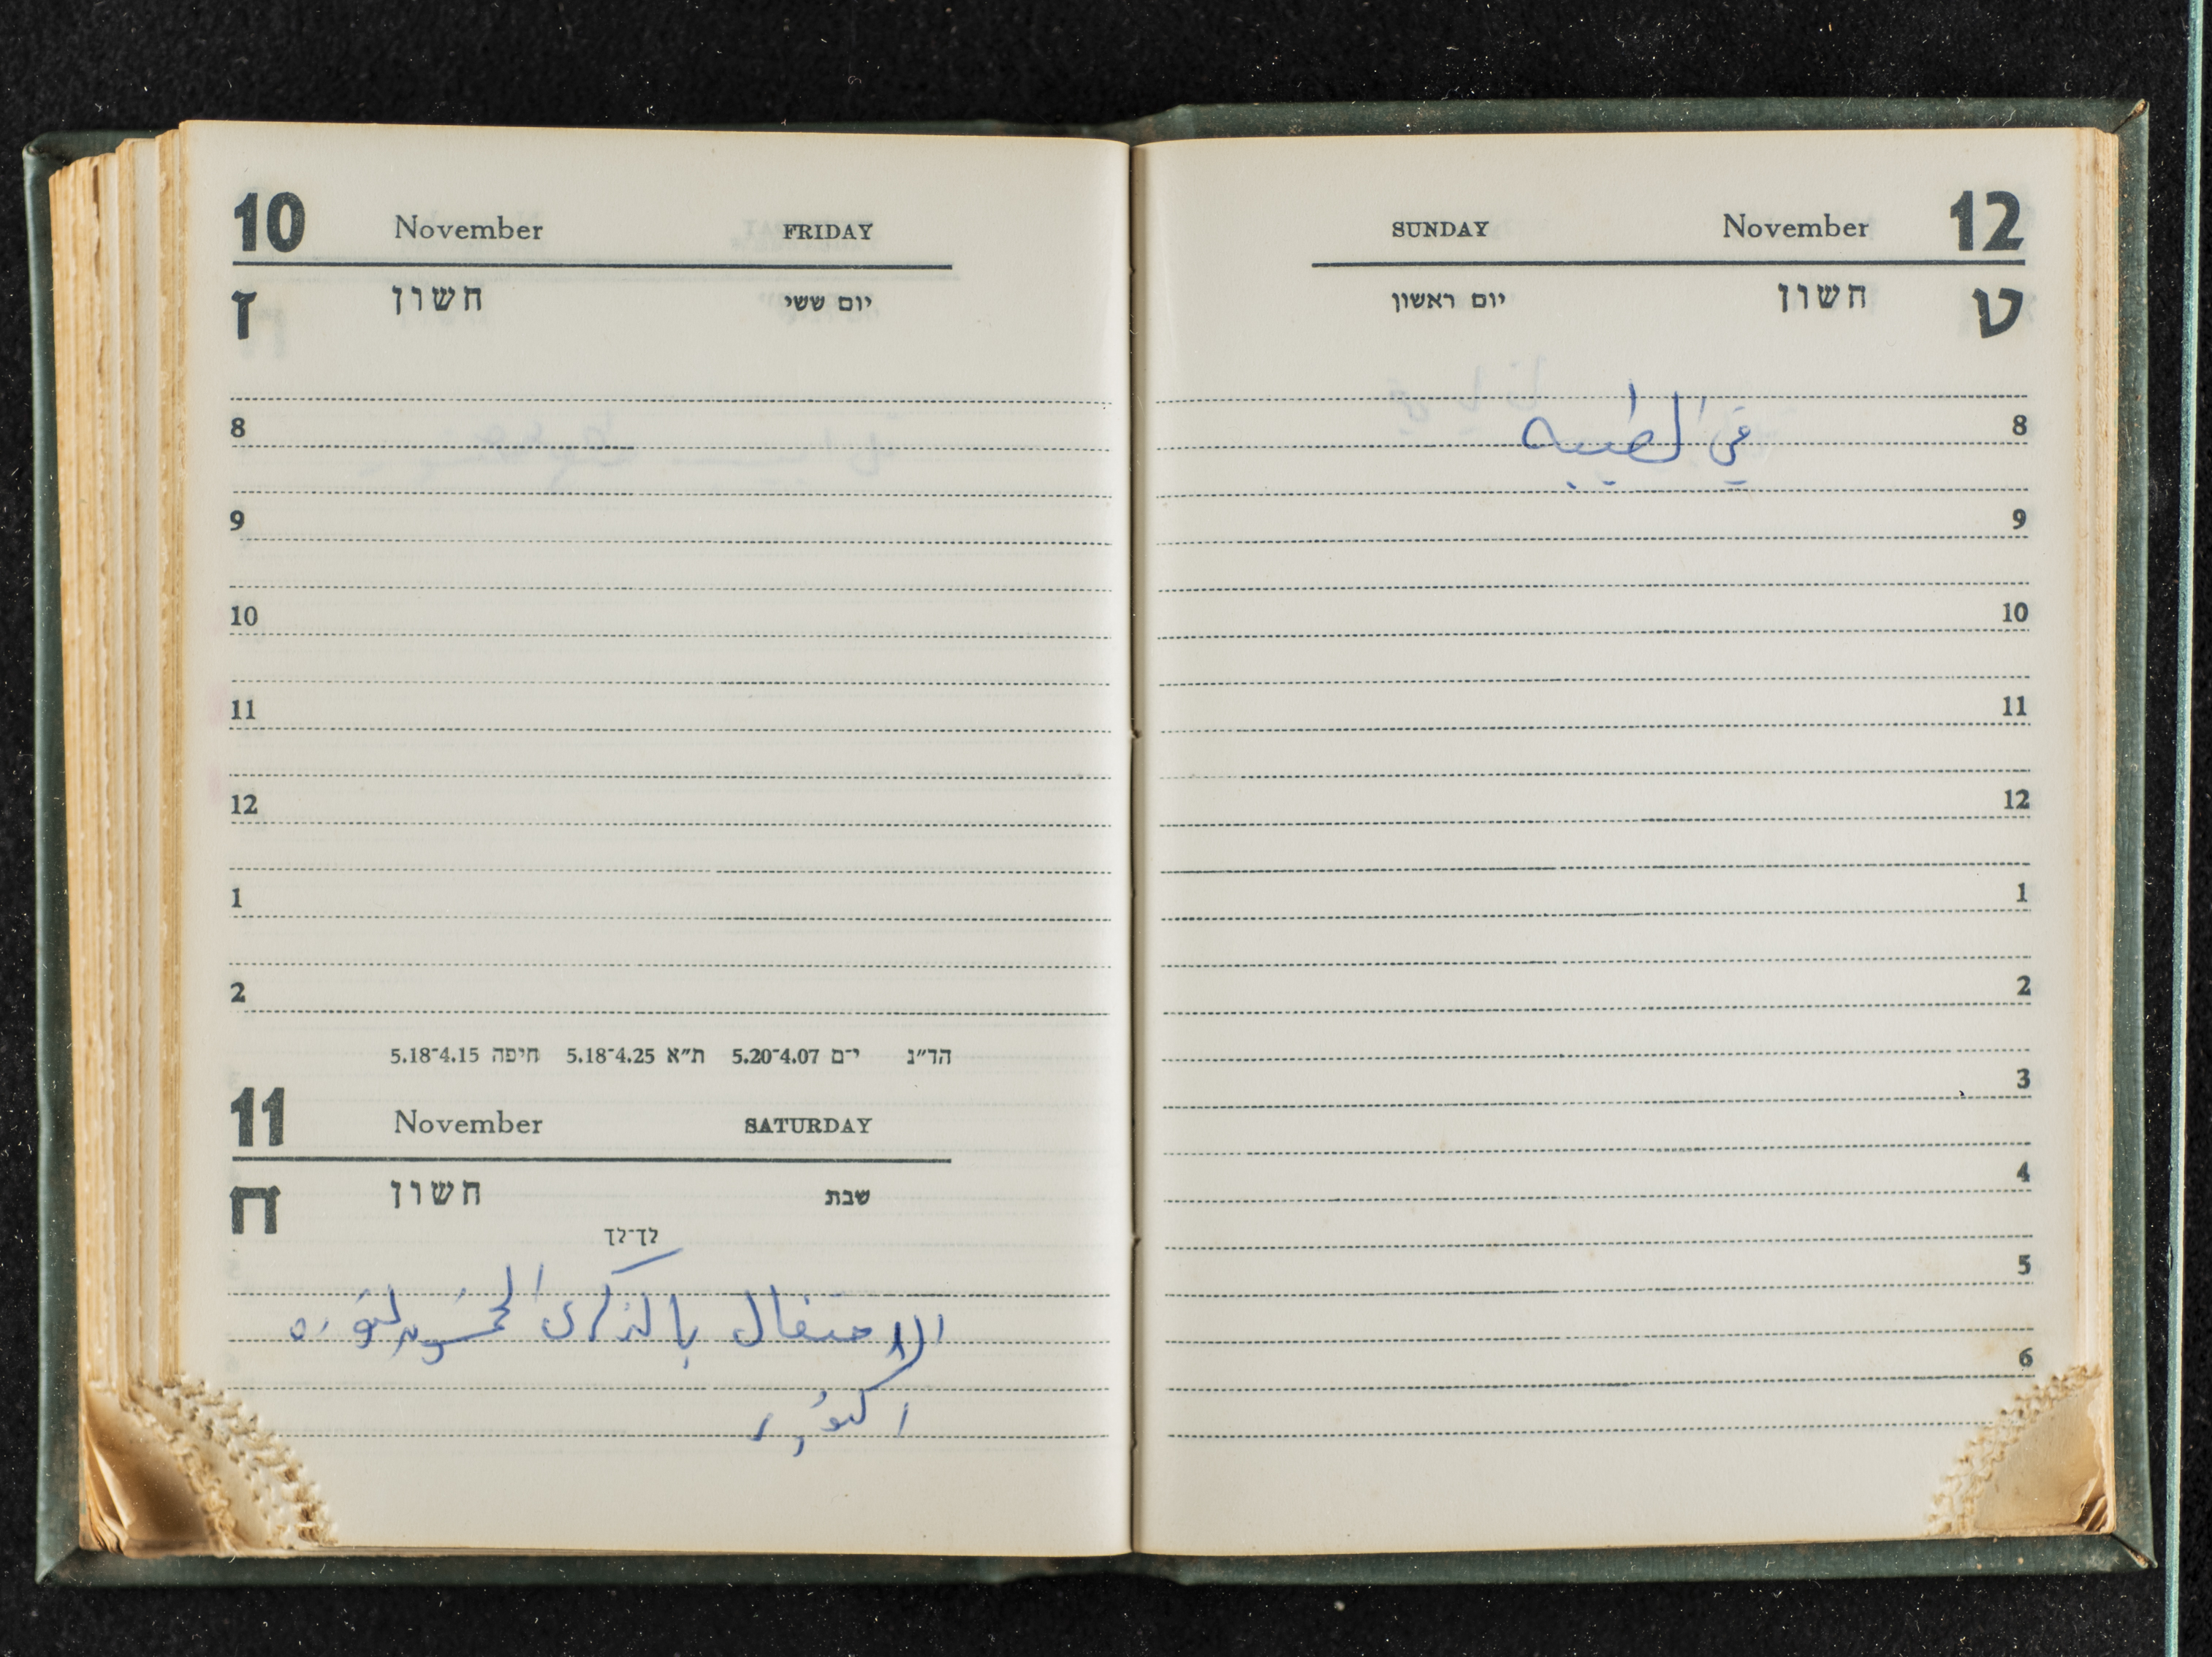 10 November FRIDAY
ז חשון יום ששי
8
9
10
11
12
1
2
הד״נ י־ם 5.20־4.07 ת״א 5.18־4.25 חיפה 5.18־4.15
11 November SATURDAY
ח חשון שבת
לך־לך
الاحتفال بالذكرى الخمسين لثورة
اكتوبر
SUNDAY November 12
יום ראשון חשון ט
في الطيبه
8
9
10
11
12
1
2
3
4
5
6